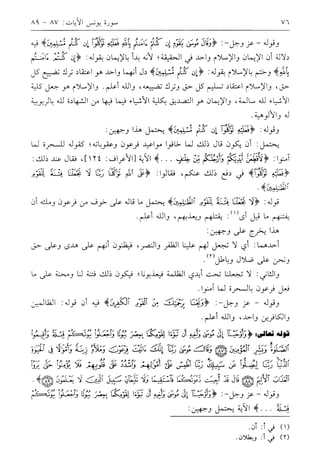 ٧٦ سورة يونس الآيات: ٨٧ - ٨٩
وقوله - عز وجل -: ﴿وَقَالَ مُوسَىٰ يَٰقَوْمِ إِن كُنتُمْ ءَامَنتُم بِٱللَّهِ فَعَلَيْهِ تَوَكَّلُوٓا۟ إِن كُنتُم مُّسْلِمِينَ﴾ فيه
دلالة أن الإيمان والإسلام واحد في الحقيقة؛ لأنه بدأ بالإيمان بقوله: ﴿إِن كُنتُمْ ءَامَنتُم
بِٱللَّهِ﴾ وختم بالإسلام بقوله: ﴿إِن كُنتُم مُّسْلِمِينَ﴾ دل أنهما واحد هو اعتقاد ترك تضييع كل
حق، والإسلام اعتقاد تسليم كل حق وترك تضييعه، والله أعلم. والإسلام هو جعل كلية
الأشياء لله سالمة، والإيمان هو التصديق بكلية الأشياء فيما فيها من الشهادة لله بالربوبية
له والألوهية.
وقوله: ﴿فَعَلَيْهِ تَوَكَّلُوٓا۟ إِن كُنتُم مُّسْلِمِينَ﴾ يحتمل هذا وجهين:
يحتمل: أن يكون قال ذلك لما خافوا مواعيد فرعون وعقوباته؛ كقوله للسحرة لما
آمنوا: ﴿لَأُقَطِّعَنَّ أَيْدِيَكُمْ وَأَرْجُلَكُم مِّنْ خِلَٰفٍ ...﴾ الآية [الأعراف: ١٢٤]، فقال عند ذلك:
﴿فَعَلَيْهِ تَوَكَّلُوٓا۟﴾ في دفع ذلك عنكم، فقالوا: ﴿عَلَى ٱللَّهِ تَوَكَّلْنَا رَبَّنَا لَا تَجْعَلْنَا فِتْنَةً لِّلْقَوْمِ
ٱلظَّٰلِمِينَ﴾.
قوله: ﴿لَا تَجْعَلْنَا فِتْنَةً لِّلْقَوْمِ ٱلظَّٰلِمِينَ﴾ يحتمل ما قاله على خوف من فرعون وملئه أن
يفتنهم ما قيل أى(١): يقتلهم ويعذبهم، والله أعلم.
هذا يخرج على وجهين:
أحدهما: أي لا تجعل لهم علينا الظفر والنصر، فيظنون أنهم على هدى وعلى حق
ونحن على ضلال وباطل(٢).
والثاني: لا تجعلنا تحت أيدي الظلمة فيعذبونا؛ فيكون ذلك فتنة لنا ومحنة على ما
فعل فرعون بالسحرة لما آمنوا.
وقوله - عز وجل -: ﴿وَنَجِّنَا بِرَحْمَتِكَ مِنَ ٱلْقَوْمِ ٱلْكَٰفِرِينَ﴾ فيه أن قوله: الظالمين
والكافرين واحد، والله أعلم.
قوله تعالى: ﴿وَأَوْحَيْنَآ إِلَىٰ مُوسَىٰ وَأَخِيهِ أَن تَبَوَّءَا لِقَوْمِكُمَا بِمِصْرَ بُيُوتًا وَٱجْعَلُوا۟ بُيُوتَكُمْ قِبْلَةً وَأَقِيمُوا۟
ٱلصَّلَوٰةَ وَبَشِّرِ ٱلْمُؤْمِنِينَ ۝٨٧ وَقَالَ مُوسَىٰ رَبَّنَآ إِنَّكَ ءَاتَيْتَ فِرْعَوْنَ وَمَلَأَهُۥ زِينَةً وَأَمْوَٰلًا فِى ٱلْحَيَوٰةِ
ٱلدُّنْيَا رَبَّنَا لِيُضِلُّوا۟ عَن سَبِيلِكَ رَبَّنَا ٱطْمِسْ عَلَىٰٓ أَمْوَٰلِهِمْ وَٱشْدُدْ عَلَىٰ قُلُوبِهِمْ فَلَا يُؤْمِنُوا۟ حَتَّىٰ يَرَوُا۟
ٱلْعَذَابَ ٱلْأَلِيمَ ۝٨٨ قَالَ قَدْ أُجِيبَت دَّعْوَتُكُمَا فَٱسْتَقِيمَا وَلَا تَتَّبِعَآنِّ سَبِيلَ ٱلَّذِينَ لَا يَعْلَمُونَ ۝٨٩﴾.
وقوله - عز وجل -: ﴿وَأَوْحَيْنَآ إِلَىٰ مُوسَىٰ وَأَخِيهِ أَن تَبَوَّءَا لِقَوْمِكُمَا بِمِصْرَ بُيُوتًا وَٱجْعَلُوا۟ بُيُوتَكُمْ
قِبْلَةً ...﴾ الآية يحتمل وجهين:
(١) في أ: أن.
(٢) في أ: وبطلان.